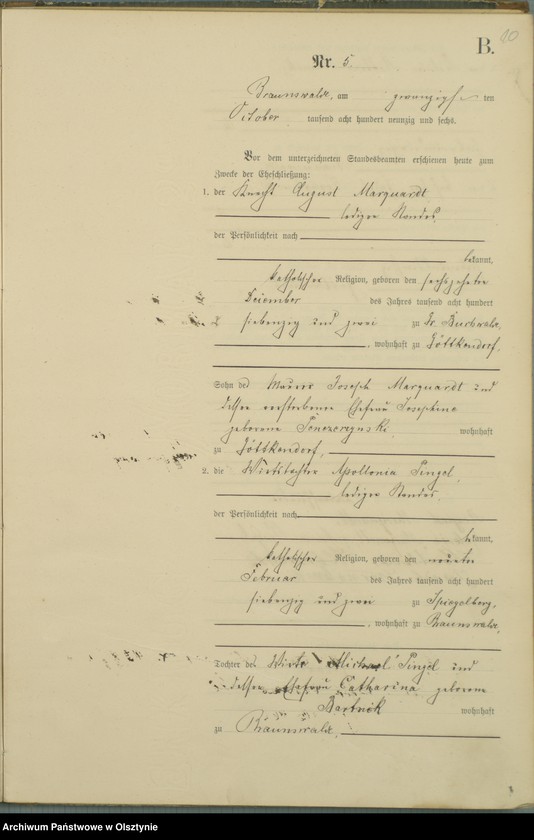 B. 10
Nr. 5.
Braunswalde, am zwanzigsten ten
October tausend acht hundert neunzig und sechs.
Vor dem unterzeichneten Standesbeamten erschienen heute zum
Zwecke der Eheschließung:
1. der Knecht August Marquardt,
ledigen Standes,
der Persönlichkeit nach
bekannt,
katholischer Religion, geboren den sechszehnten
Dezember des Jahres tausend acht hundert
siebenzig und zwei zu Gr. Buchwalde,
, wohnhaft zu Göttkendorf,
Sohn des Maurer Joseph Marquardt und
dessen verstorbene Ehefrau Josephine
geborene wohnhaft
zu Göttkendorf,
2. die Wirtstochter Apollonia Pingel,
ledigen Standes,
der Persönlichkeit nach
bekannt,
katholischer Religion, geboren den neunten
Februar des Jahres tausend acht hundert
siebenzig und zwei zu Spiegelberg,
, wohnhaft zu Braunswalde,
Tochter des Wirts Michael Pingel und
dessen Ehefrau Catharina geborene
Bartnik wohnhaft
zu Braunswalde,
Archiwum Państwowe w Olsztynie